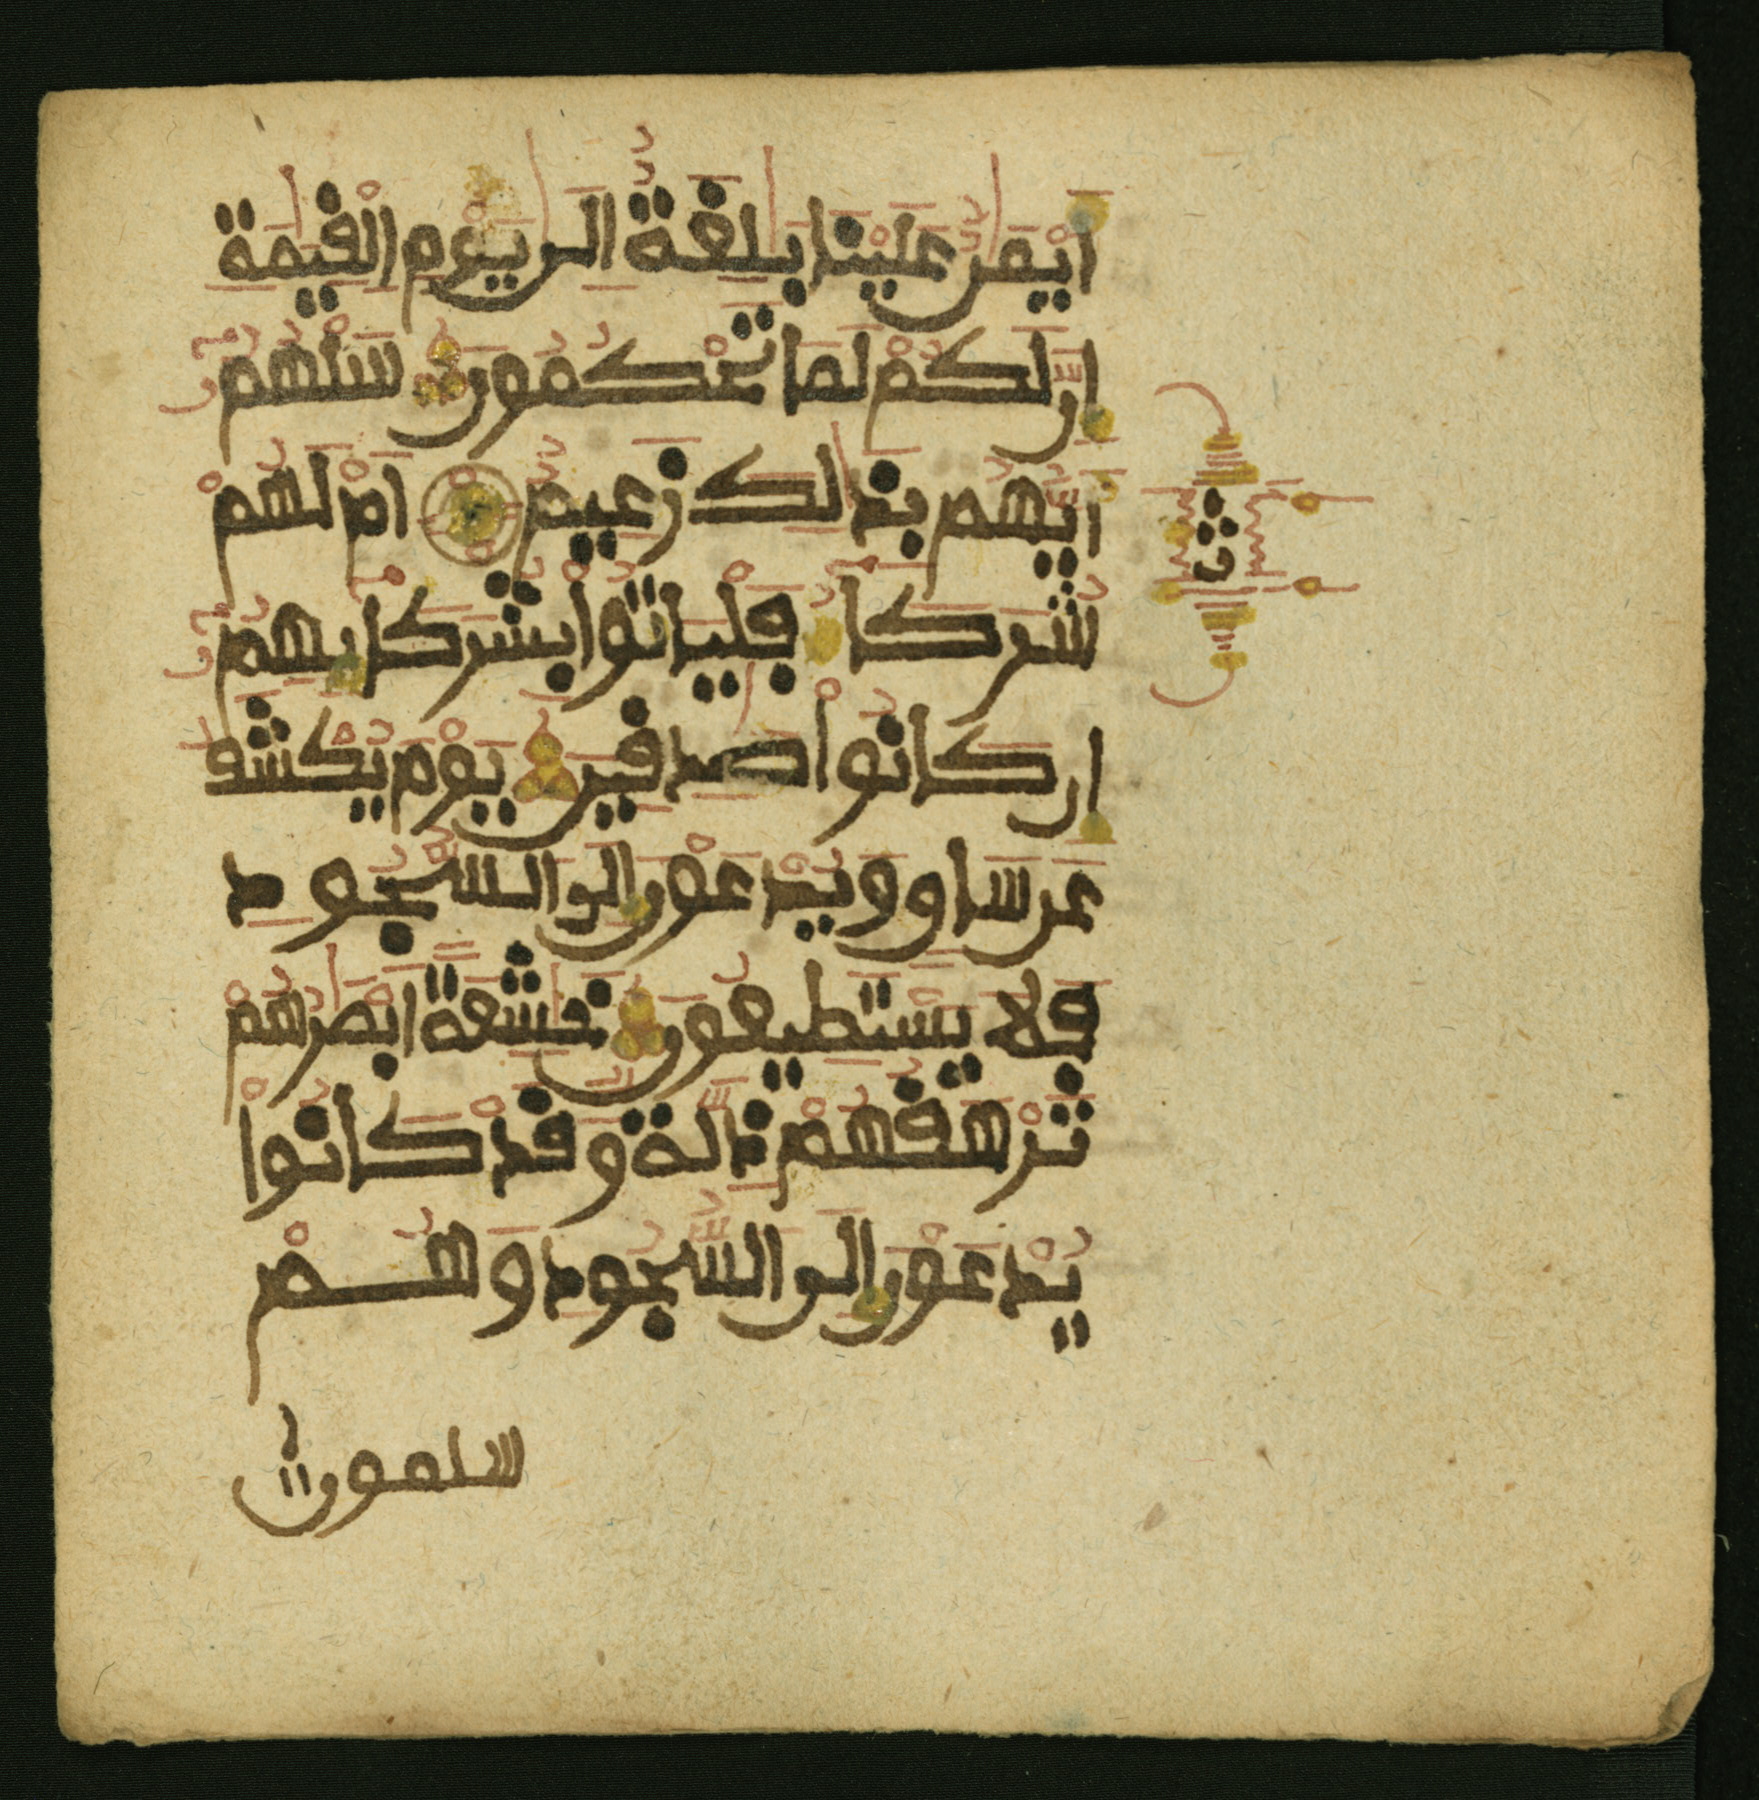 ايمن علينا بلغة الى يوم القيمة
ان لكم لما تحكمون سلهم
ايهم بذلك زعيم ام لهم
شركا فلياتوا بشركايهم
ان كانوا صدقين يوم يكشف
عن ساق ويدعون الى السجود
فلا يستطيعون خشعة ابصرهم
ترهقهم ذلة وقد كانوا
يدعون الى السجود وهم
سلمون